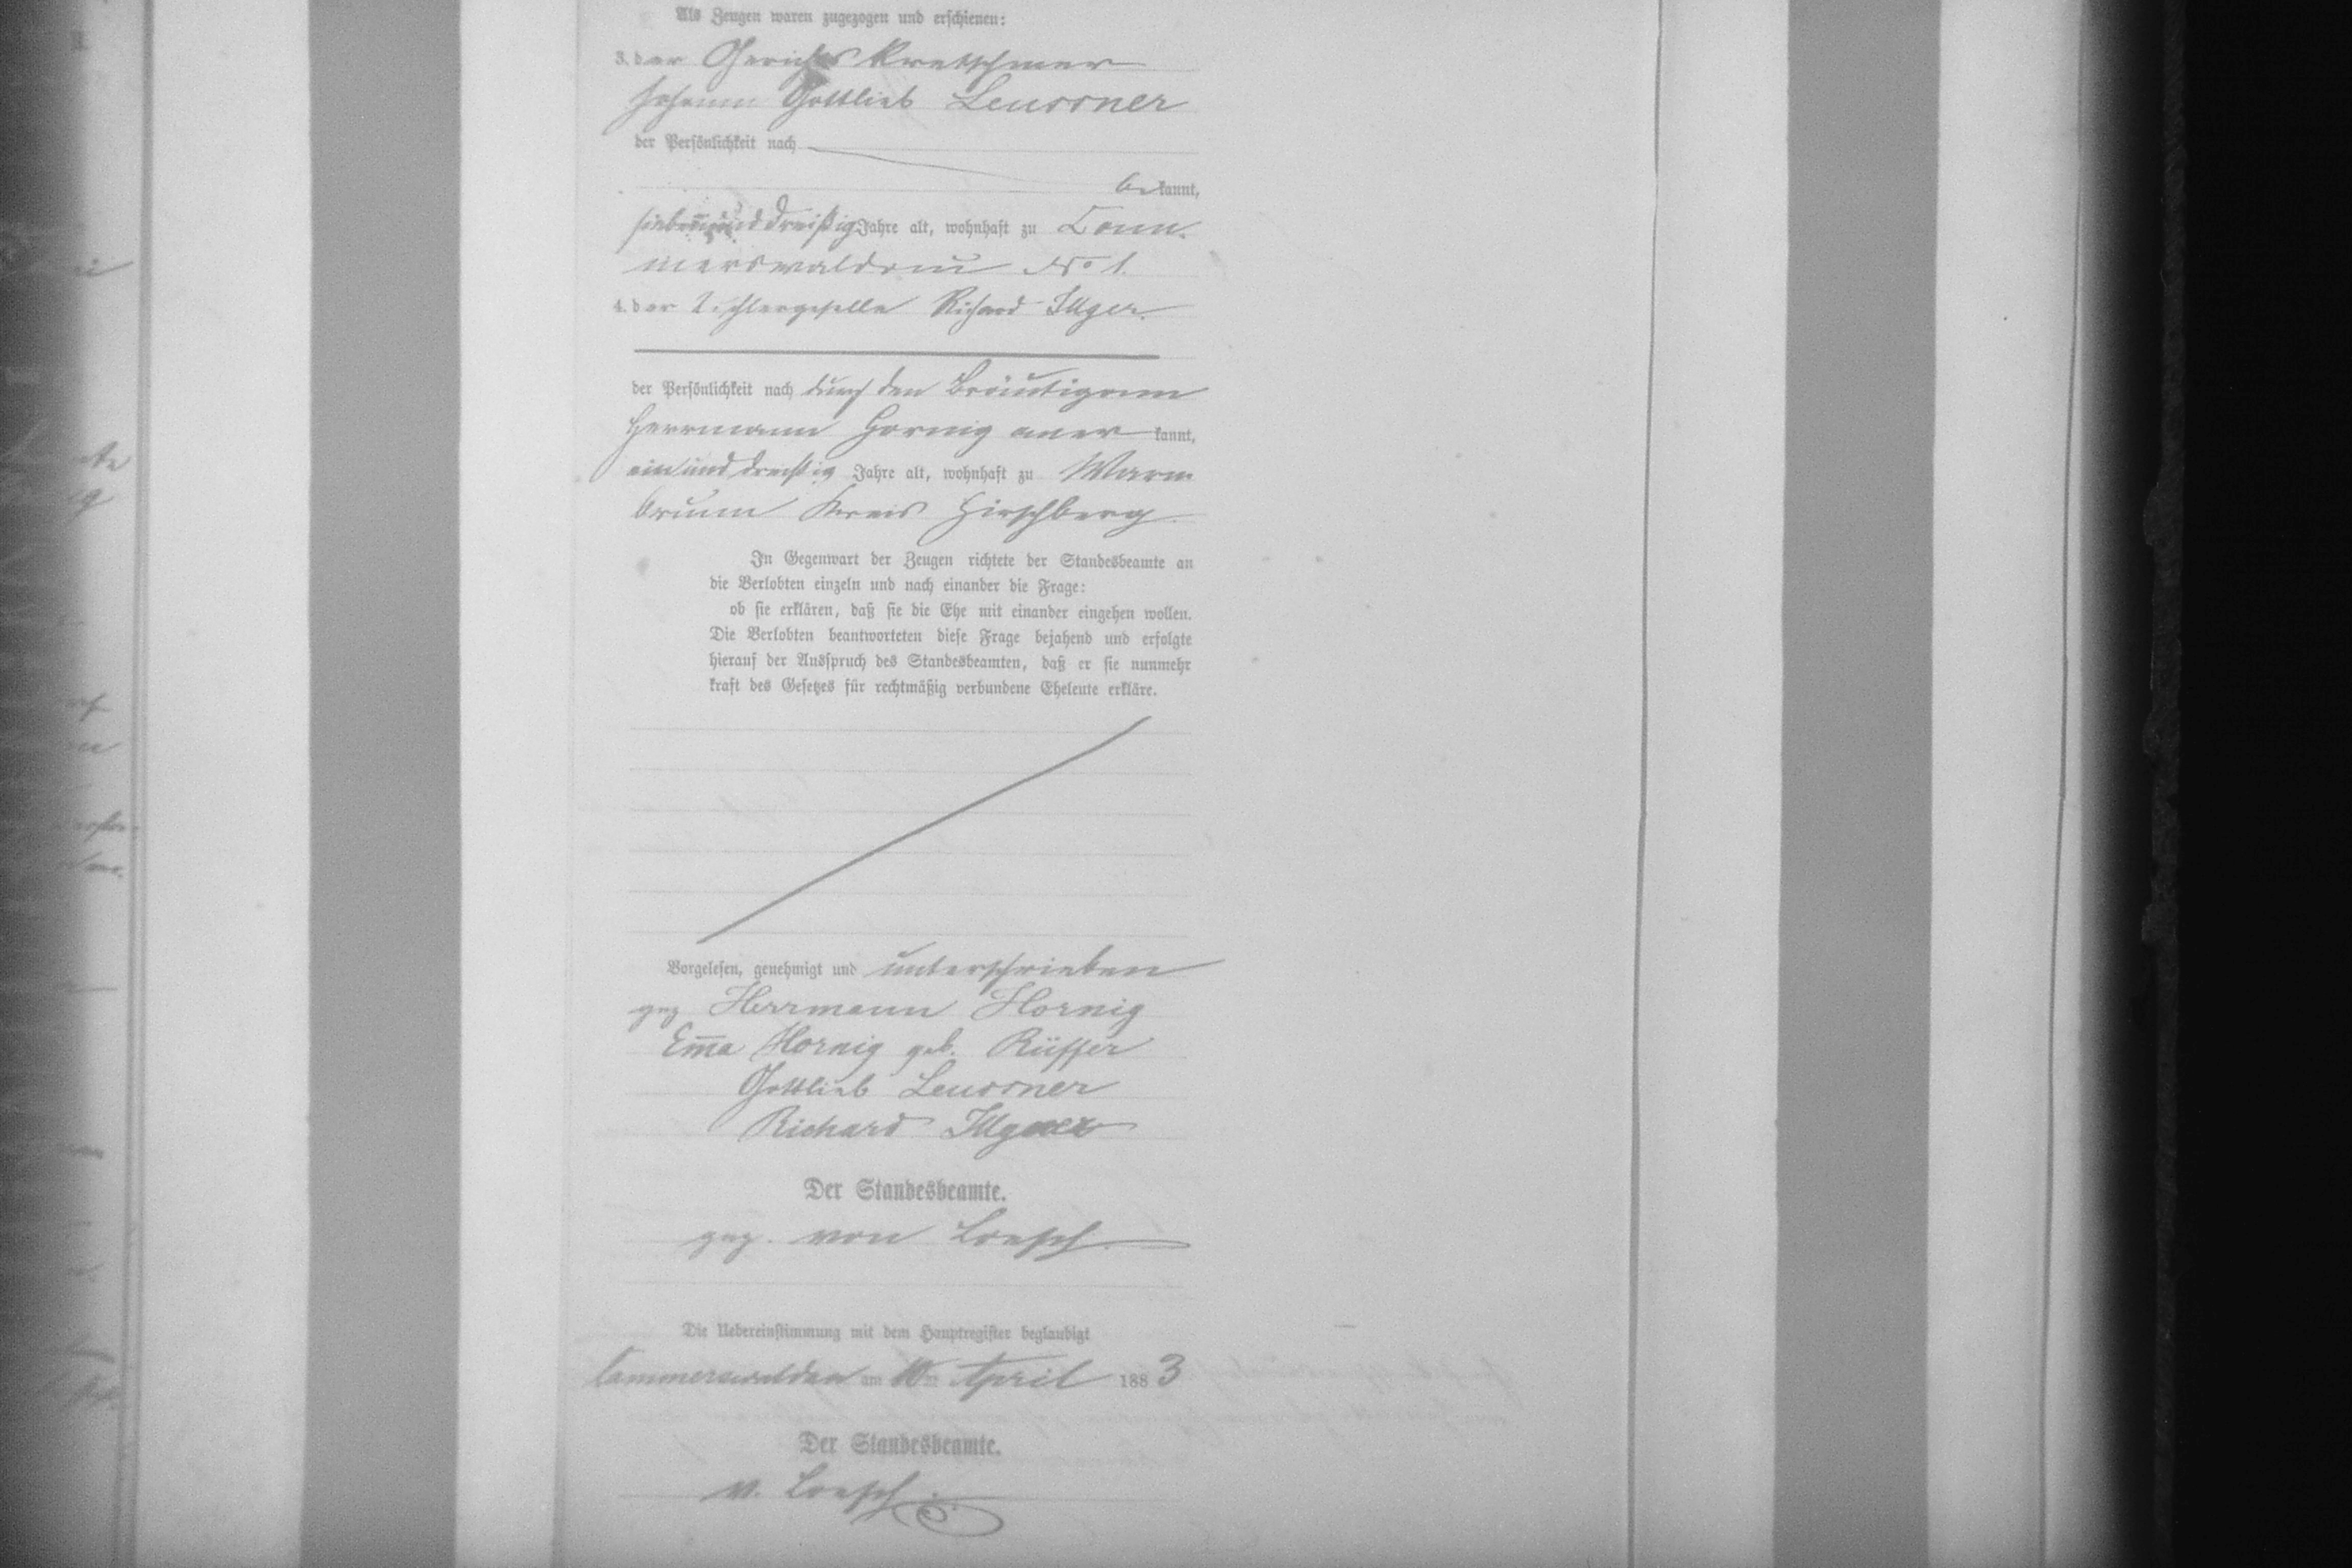 Als Zeugen waren zugezogen und erschienen:
3. der Gerichts Kretschmer
Johann Gottlieb Leussner
der Persönlichkeit nach
bekannt,
siebenunddreißig Jahre alt, wohnhaft zu Cam-
merswaldau No 1.
4. der Tischlergeselle Richard Illger
der Persönlichkeit nach durch den Bräutigam
Herrmann Hornig anerkannt,
einunddreißig Jahre alt, wohnhaft zu Warm
brunn Kreis Hirschberg.
In Gegenwart der Zeugen richtete der Standesbeamte an
die Verlobten einzeln und nach einander die Frage:
ob sie erklären, daß sie die Ehe mit einander eingehen wollen.
Die Verlobten beantworteten diese Frage bejahend und erfolgte
hierauf der Ausspruch des Standesbeamten, daß er sie nunmehr
kraft des Gesetzes für rechtmäßig verbundene Eheleute erkläre.
Vorgelesen, genehmigt und unterschrieben
gez Herrmann Hornig
Em̅a Hornig geb. Rüffer
Gottlieb Leussner
Richard
Der Standesbeamte.
gez. von Loesch.
Die Uebereinstimmung mit dem Hauptregister beglaubigt
Cammerswaldau am 10ten April 1883
Der Standesbeamte.
v. Loesch